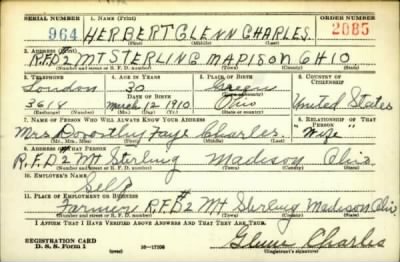 SERIAL NUMBER 1. NAME (Print) ORDER NUMBER
964 HERBERT GLENN CHARLES 2085
(First) (Middle) (Last)
2. ADDRESS (Print)
R.F.D2 MT STERLING MADISON OHIO
(Number and street or R. F. D. number) (Town) (County) (State)
3. TELEPHONE 4. AGE IN YEARS 5. PLACE OF BIRTH 6. COUNTRY OF CITIZENSHIP
London 30 Green
DATE OF BIRTH
3614 March 12 1910 Ohio United States
(Exchange) (Number) (Mo.) (Day) (Yr.) (State or country)
7. NAME OF PERSON WHO WILL ALWAYS KNOW YOUR ADDRESS 8. RELATIONSHIP OF THAT PERSON
Mrs Dorothy Faye Charles "Wife"
(Mr., Mrs., Miss) (First) (Middle) (Last)
9. ADDRESS OF THAT PERSON
R.F.D2 Mt Sterling Madison Ohio
(Number and street or R. F. D. number) (Town) (County) (State)
10. EMPLOYER'S NAME
Self
11. PLACE OF EMPLOYMENT OR BUSINESS
Farmer R.F.D2 Mt Sterling Madison Ohio
(Number and street or R. F. D. number) (Town) (County) (State)
I AFFIRM THAT I HAVE VERIFIED ABOVE ANSWERS AND THAT THEY ARE TRUE.
REGISTRATION CARD
D. S. S. Form 1 (over) 16-17105 Glenn Charles
(Registrant's signature)